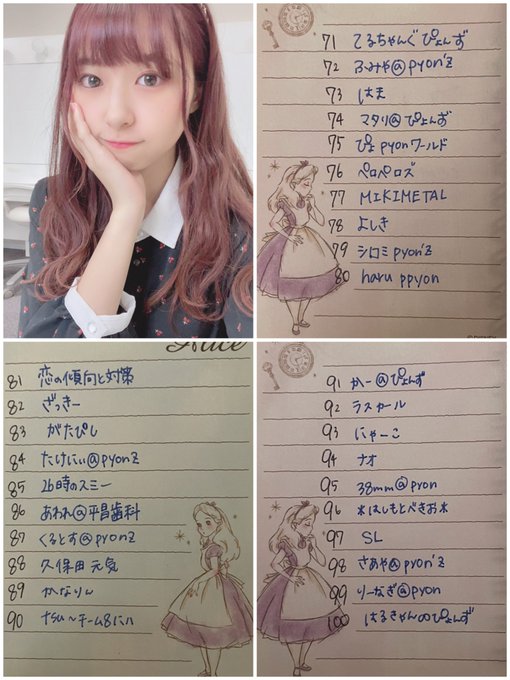 71 てるちゃんぐぴょんず
72 ふみや@pyon'z
73 はま
74 マタリ@ぴょんず
75 ぴょpyonワールド
76 ペロペロズ
77 MIKIMETAL
78 よしき
79 シロミpyon'z
80 haru ppyon
Alice
81 恋の傾向と対策
82 ざっきー
83 がたぴし
84 たけにぃ@pyonz
85 26時のスミー
86 あわれ@平昌歯科
87 くるとす@pyonz
88 久保田元気
89 かなりん
90 tsu～チーム8に
91 かー@ぴょんず
92 ラスカール
93 にゃーこ
94 ナオ
95 38mm@pyon
96 *はしもとべきお*
97 SL
98 さあや@pyon'z
99 りーなぎ@pyon
100 はるきゃんのぴょんず